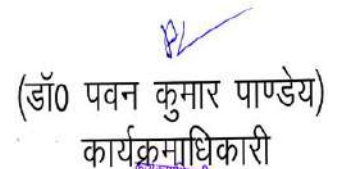 (डॉ0 पवन कुमार पाण्डेय)
कार्यक्रमाधिकारी